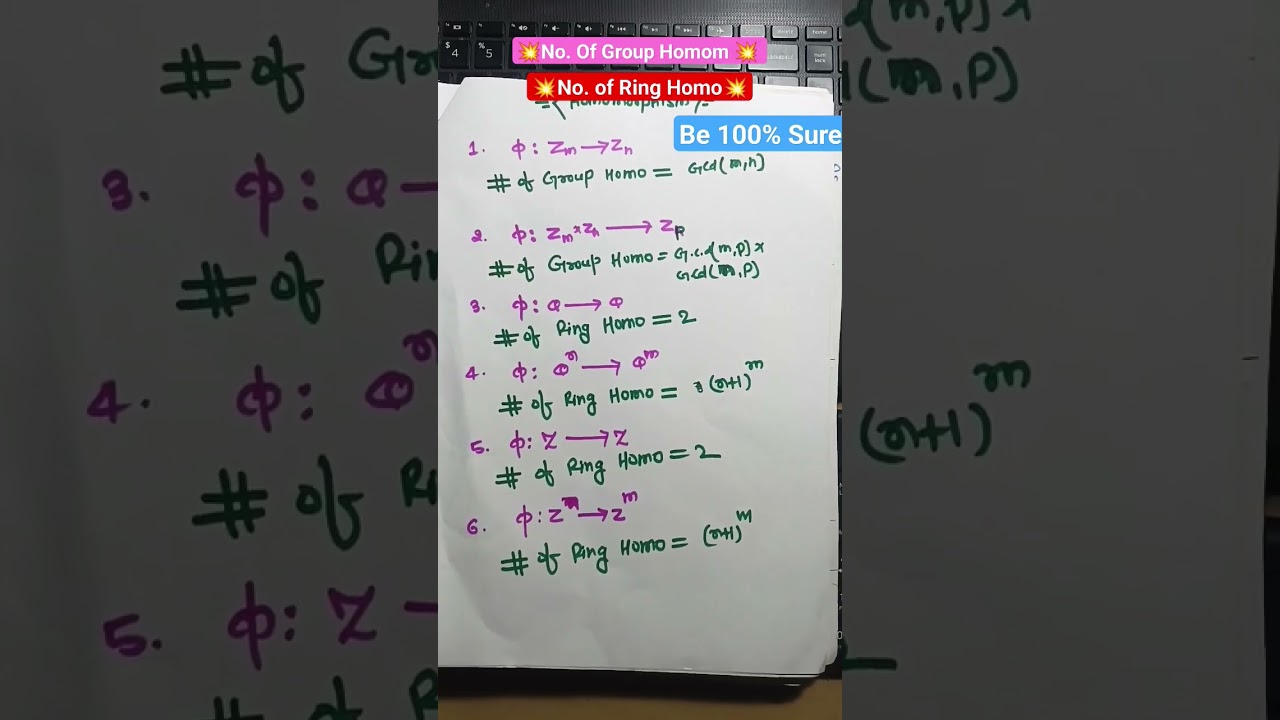 💥No. Of Group Homom 💥
💥No. of Ring Homo💥
Be 100% Sure
1. φ: Zm → Zn
# of Group Homo = Gcd(m,n)
2. φ: Zm × Zn → Zp
# of Group Homo = G.c.d(m,p) ×
Gcd(m,p)
3. φ: Q → Q
# of Ring Homo = 2
4. φ: Qⁿ → Qᵐ
# of Ring Homo = (n+1)ᵐ
5. φ: Z → Z
# of Ring Homo = 2
6. φ: Zⁿ → Zᵐ
# of Ring Homo = (n+1)ᵐ